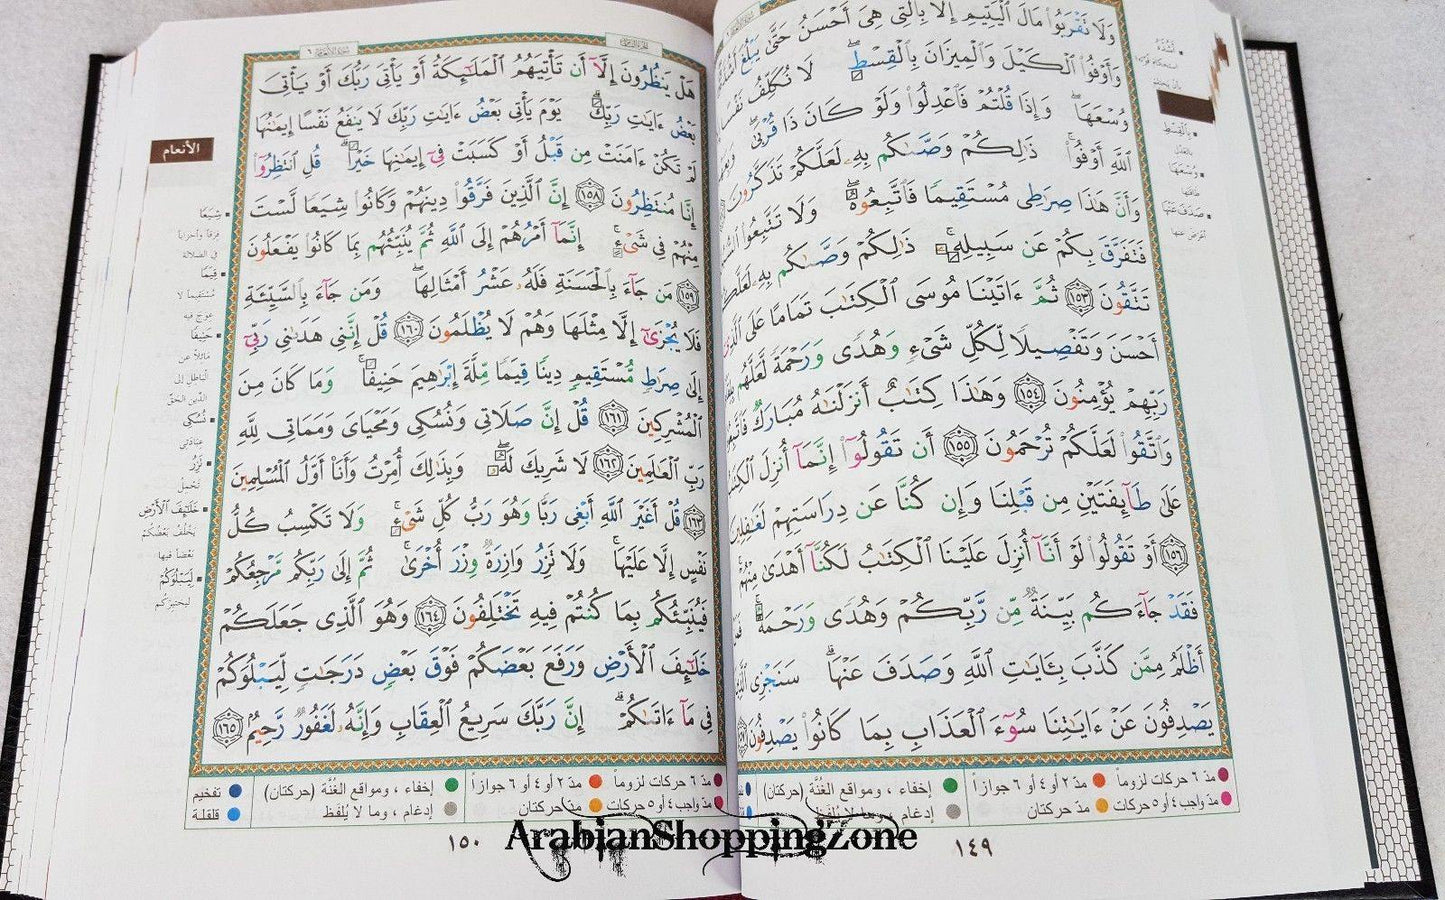 وَلَا تَقْرَبُوا۟ مَالَ ٱلْيَتِيمِ إِلَّا بِٱلَّتِى هِىَ أَحْسَنُ حَتَّىٰ يَبْلُغَ
وَأَوْفُوا۟ ٱلْكَيْلَ وَٱلْمِيزَانَ بِٱلْقِسْطِ ۖ لَا نُكَلِّفُ نَفْسًا
وُسْعَهَا ۖ وَإِذَا قُلْتُمْ فَٱعْدِلُوا۟ وَلَوْ كَانَ ذَا قُرْبَىٰ ۖ
ٱللَّهِ أَوْفُوا۟ ۚ ذَٰلِكُمْ وَصَّىٰكُم بِهِۦ لَعَلَّكُمْ تَذَكَّرُونَ
وَأَنَّ هَٰذَا صِرَٰطِى مُسْتَقِيمًا فَٱتَّبِعُوهُ ۖ وَلَا تَتَّبِعُوا۟
فَتَفَرَّقَ بِكُمْ عَن سَبِيلِهِۦ ۚ ذَٰلِكُمْ وَصَّىٰكُم بِهِۦ لَعَلَّكُمْ
تَتَّقُونَ ١٥٣ ثُمَّ ءَاتَيْنَا مُوسَى ٱلْكِتَٰبَ تَمَامًا عَلَى ٱلَّذِىٓ
أَحْسَنَ وَتَفْصِيلًا لِّكُلِّ شَىْءٍ وَهُدًى وَرَحْمَةً لَّعَلَّهُم
رَبِّهِمْ يُؤْمِنُونَ ١٥٤ وَهَٰذَا كِتَٰبٌ أَنزَلْنَٰهُ مُبَارَكٌ فَٱتَّبِعُوهُ
وَٱتَّقُوا۟ لَعَلَّكُمْ تُرْحَمُونَ ١٥٥ أَن تَقُولُوٓا۟ إِنَّمَآ أُنزِلَ ٱلْكِتَٰبُ
عَلَىٰ طَآئِفَتَيْنِ مِن قَبْلِنَا وَإِن كُنَّا عَن دِرَاسَتِهِمْ لَغَٰفِلِينَ
١٥٦ أَوْ تَقُولُوا۟ لَوْ أَنَّآ أُنزِلَ عَلَيْنَا ٱلْكِتَٰبُ لَكُنَّآ أَهْدَىٰ مِنْهُمْ ۚ
فَقَدْ جَآءَكُم بَيِّنَةٌ مِّن رَّبِّكُمْ وَهُدًى وَرَحْمَةٌ ۚ
أَظْلَمُ مِمَّن كَذَّبَ بِـَٔايَٰتِ ٱللَّهِ وَصَدَفَ عَنْهَا ۗ سَنَجْزِى ٱلَّذِينَ
يَصْدِفُونَ عَنْ ءَايَٰتِنَا سُوٓءَ ٱلْعَذَابِ بِمَا كَانُوا۟ يَصْدِفُونَ
مدّ ٦ حركات لزوماً
مدّ ٢ أو ٤ أو ٦ جوازاً
إخفاء ، ومواقع الغُنَّة (حركتان)
مدّ واجب ٤ أو ٥ حركات
مدّ حركتان
١٤٩
هَلْ يَنظُرُونَ إِلَّآ أَن تَأْتِيَهُمُ ٱلْمَلَٰٓئِكَةُ أَوْ يَأْتِىَ رَبُّكَ أَوْ يَأْتِىَ
بَعْضُ ءَايَٰتِ رَبِّكَ ۗ يَوْمَ يَأْتِى بَعْضُ ءَايَٰتِ رَبِّكَ لَا يَنفَعُ نَفْسًا إِيمَٰنُهَا
لَمْ تَكُنْ ءَامَنَتْ مِن قَبْلُ أَوْ كَسَبَتْ فِىٓ إِيمَٰنِهَا خَيْرًا ۗ قُلِ ٱنتَظِرُوٓا۟
إِنَّا مُنتَظِرُونَ ١٥٨ إِنَّ ٱلَّذِينَ فَرَّقُوا۟ دِينَهُمْ وَكَانُوا۟ شِيَعًا لَّسْتَ
مِنْهُمْ فِى شَىْءٍ ۚ إِنَّمَآ أَمْرُهُمْ إِلَى ٱللَّهِ ثُمَّ يُنَبِّئُهُم بِمَا كَانُوا۟ يَفْعَلُونَ
١٥٩ مَن جَآءَ بِٱلْحَسَنَةِ فَلَهُۥ عَشْرُ أَمْثَالِهَا ۖ وَمَن جَآءَ بِٱلسَّيِّئَةِ
فَلَا يُجْزَىٰٓ إِلَّا مِثْلَهَا وَهُمْ لَا يُظْلَمُونَ ١٦٠ قُلْ إِنَّنِى هَدَىٰنِى رَبِّىٓ
إِلَىٰ صِرَٰطٍ مُّسْتَقِيمٍ دِينًا قِيَمًا مِّلَّةَ إِبْرَٰهِيمَ حَنِيفًا ۚ وَمَا كَانَ مِنَ
ٱلْمُشْرِكِينَ ١٦١ قُلْ إِنَّ صَلَاتِى وَنُسُكِى وَمَحْيَاىَ وَمَمَاتِى لِلَّهِ
رَبِّ ٱلْعَٰلَمِينَ ١٦٢ لَا شَرِيكَ لَهُۥ ۖ وَبِذَٰلِكَ أُمِرْتُ وَأَنَا۠ أَوَّلُ ٱلْمُسْلِمِينَ
١٦٣ قُلْ أَغَيْرَ ٱللَّهِ أَبْغِى رَبًّا وَهُوَ رَبُّ كُلِّ شَىْءٍ ۚ وَلَا تَكْسِبُ كُلُّ
نَفْسٍ إِلَّا عَلَيْهَا ۚ وَلَا تَزِرُ وَازِرَةٌ وِزْرَ أُخْرَىٰ ۚ ثُمَّ إِلَىٰ رَبِّكُم مَّرْجِعُكُمْ
فَيُنَبِّئُكُم بِمَا كُنتُمْ فِيهِ تَخْتَلِفُونَ ١٦٤ وَهُوَ ٱلَّذِى جَعَلَكُمْ
خَلَٰٓئِفَ ٱلْأَرْضِ وَرَفَعَ بَعْضَكُمْ فَوْقَ بَعْضٍ دَرَجَٰتٍ لِّيَبْلُوَكُمْ
فِى مَآ ءَاتَىٰكُمْ ۗ إِنَّ رَبَّكَ سَرِيعُ ٱلْعِقَابِ وَإِنَّهُۥ لَغَفُورٌ رَّحِيمٌ ١٦٥
الأنعام
شِيَعًا
فرقا وأحزابا
في الضلالة
قِيَمًا
مُسْتَقِيما لا
عوج فيه
حَنِيفًا
مائلا عن
الباطل إلى
الدِّين الحَقّ
نُسُكِى
عبادتي
تَزِرُ
تَحْمِلُ
خَلَٰٓئِفَ ٱلْأَرْضِ
يَخْلُفُ بَعْضُكُمْ
بَعْضا فيها
لِّيَبْلُوَكُمْ
ليختبركم
مدّ ٦ حركات لزوماً
مدّ ٢ أو ٤ أو ٦ جوازاً
إخفاء ، ومواقع الغُنَّة (حركتان)
تفخيم
مدّ واجب ٤ أو ٥ حركات
مدّ حركتان
إدغام ، وما لا يُلفظ
قلقلة
١٥٠
ArabianShoppingZone